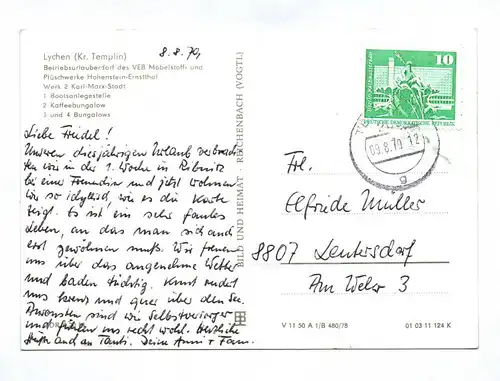 Lychen (Kr. Templin)
Betriebsurlauberdorf des VEB Möbelstoff- und
Plüschwerke Hohenstein-Ernstthal
Werk 2 Karl-Marx-Stadt
1 Bootsanlegestelle
2 Kaffeebungalow
3 und 4 Bungalows
8.8.79
Liebe Friedel!
Unseren diesjährigen Urlaub verbrach-
ten wir in der 1. Woche in Ribnitz
bei einer Freundin und jetzt wohnen
wir so idyllisch, wie es die Karte
zeigt. Es ist ein sehr faules
Leben, an das man sich auch
erst gewöhnen muß. Wir freuen
uns über das angenehme Wetter
und baden tüchtig. Knut rudert
uns kreuz und quer über den See.
Ansonsten sind wir Selbstversorger
und fühlen uns recht wohl. Herzliche
Grüße auch an Tanti. Deine Anni + Fam.
BILD UND HEIMAT REICHENBACH (VOGTL)
10
DEUTSCHE DEMOKRATISCHE REPUBLIK
09.8.79-12
g
Frl.
Elfriede Müller
8807 Leutersdorf
Am Wehr 3
V 11 50 A 1/B 480/78
01 03 11 124 K